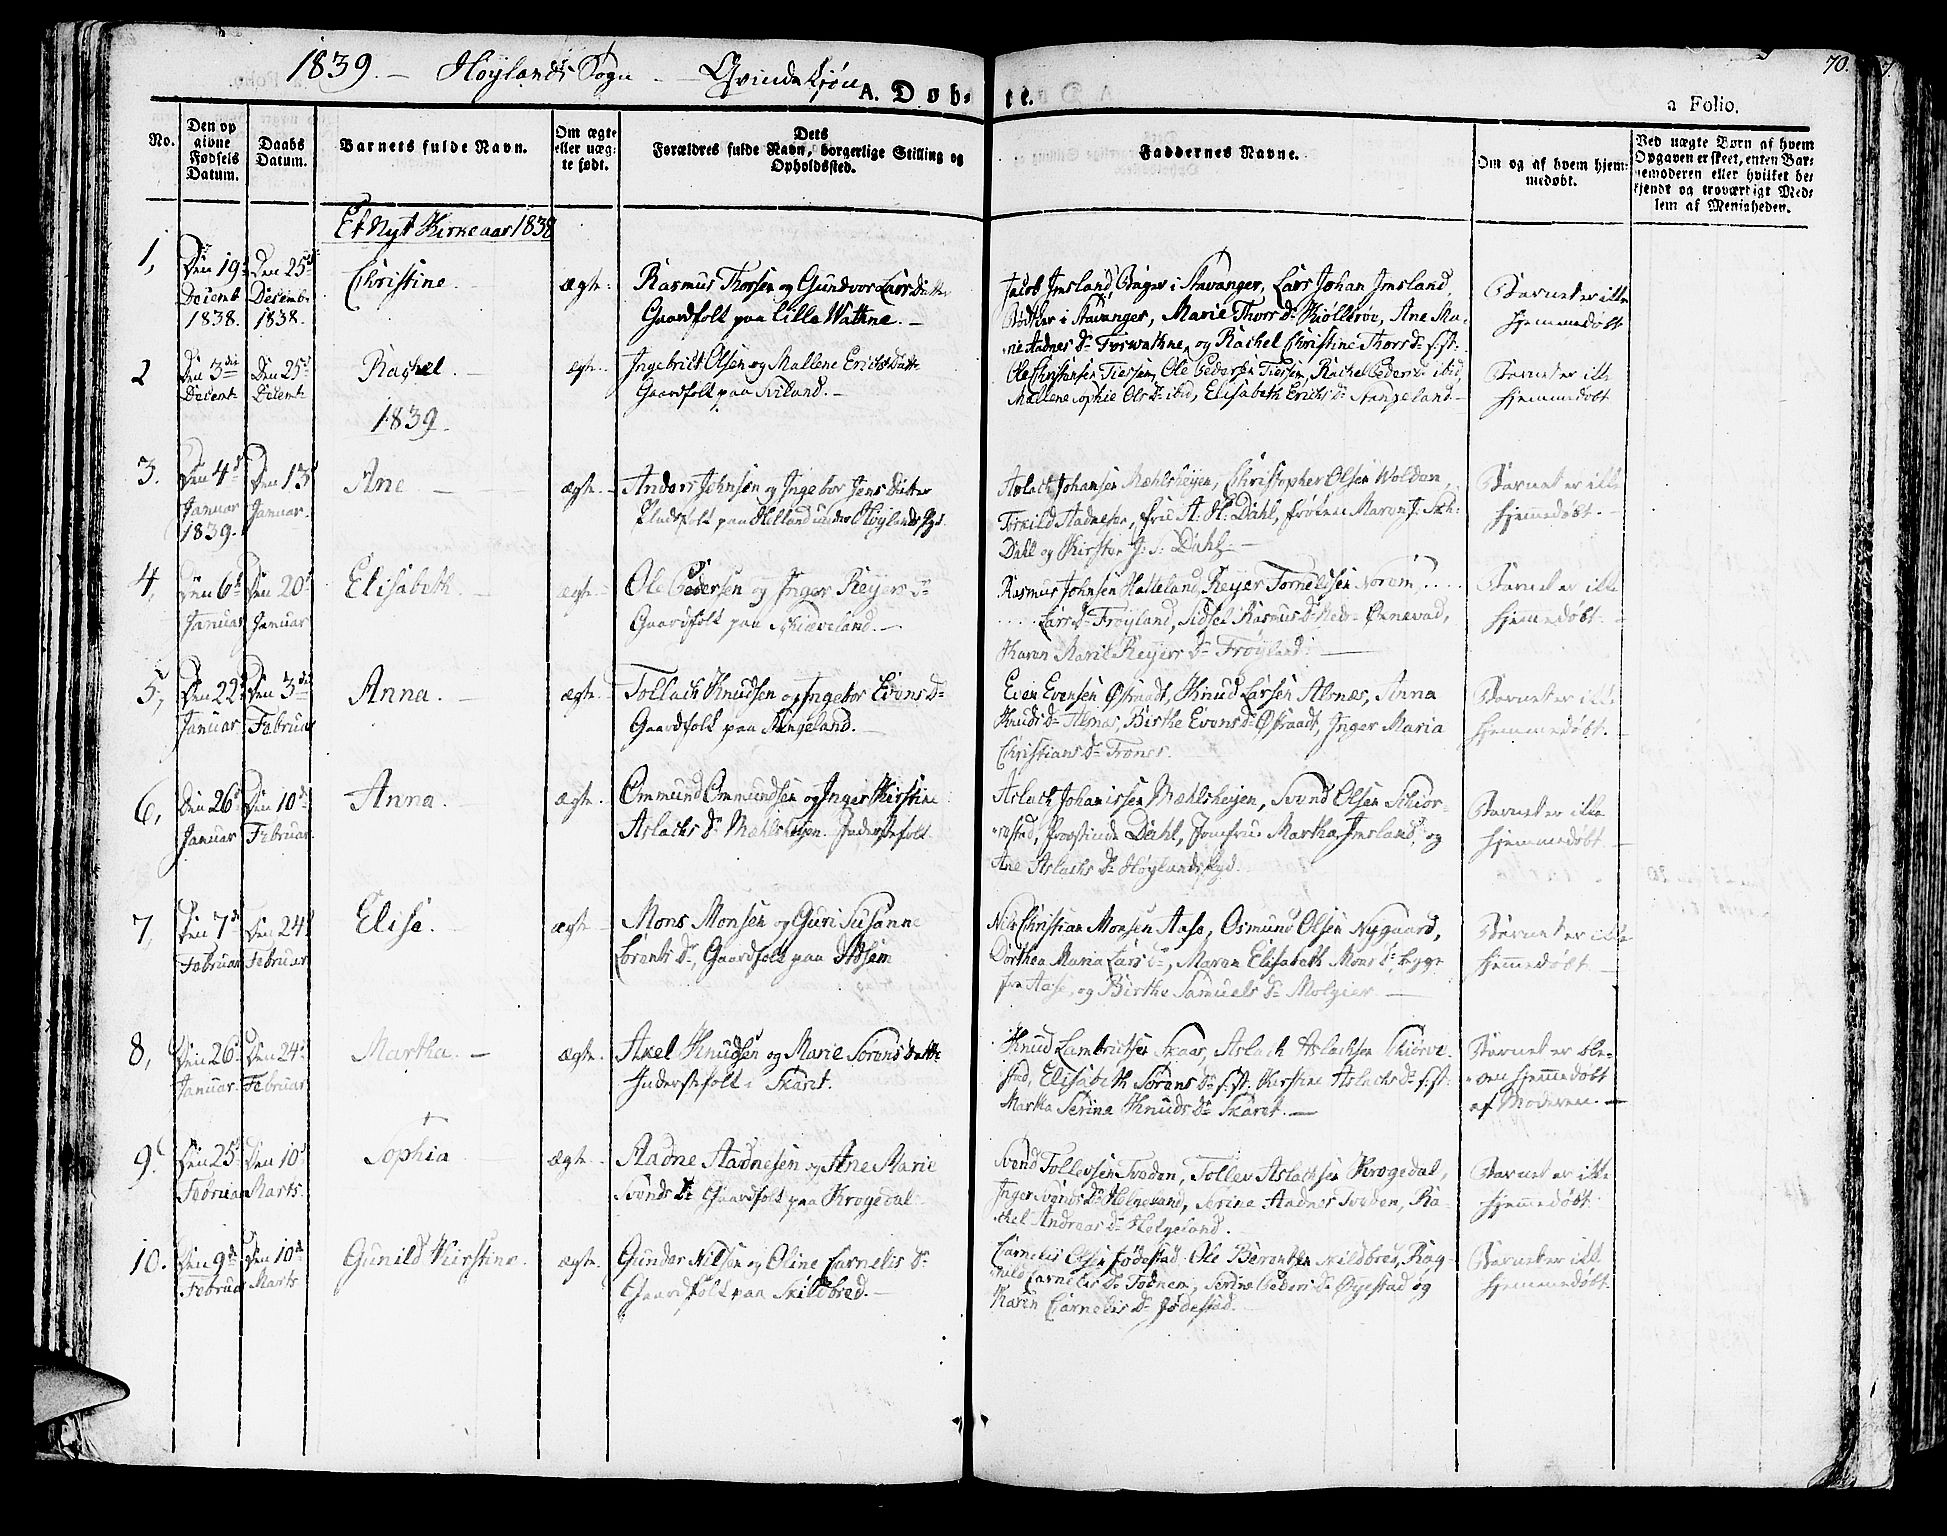 1839. — Høylands Sogn — Qvindekjøn
A. Døb- te.
70.
a Folio.
No.
Den op
givne
Fødsels
Datum.
Daabs
Datum.
Barnets fulde Navn.
Om ægte
eller uæg-
te født.
Dets
Forældres fulde Navn, borgerlige Stilling og
Opholdssted.
Faddernes Navne.
Om og af hvem hjem-
medøbt.
Ved uægte Børn af hvem
Opgaven er skeet, enten Bar-
nemoderen eller hvilket be-
kjendt og troværdigt Med-
lem af Menigheden.
Et Nyt Kirkeaar 1838
1,
Den 19de
Decemb
1838.
Den 25de
Decembr
1838.
Christine
ægte.
Rasmus Thorsen og Gundvor Lars Datter
Gaardfolk paa Lille Wathne. —
Jacob Imsland, Bager i Stavanger, Lars Johan Imsland,
Bødker i Stavanger, Marie Thors Dr
Ane Ma-
rie Aadnes Dr og Rachel Christine Thors Dr
Barnet er ikke
hjemmedøbt
2
Den 3die
Decemb
Den 25de
Decemb
Rachel. —
ægte.
Ingebrict Olsen og Mallene Erichs Datter
Gaardfolk paa Sviland. —
Ole Christensen Ole Pedersen Rachel Peders Dr ibid,
Mallene Sophie Ols Dr ibid, Elisabeth Erichs Dr
Barnet er ikke
hjemmedøbt
1839.
3.
Den 4de
Januar
1839.
Den 13de
Januar.
Ane —
ægte.
Anders Johnsen og Ingebor Jens Datter
Pladsfolk paa Helland under Høylands Pgd.
Aslach Johansen Mæhlsheyen, Christopher Olsen
Torkild Aadnesen, Frue A. H. Dahl, Frøken Maren J. Seh:
Dahl og Kirsten J. S. Dahl. —
Barnet er ikke
hjemmedøbt. —
4,
Den 6te
Januar
Den 20de
Januar
Elisabeth. —
ægte
Ole Pedersen og Inger Reyers Dr
Gaardfolk paa Skiæveland. —
Rasmus Johnsen Halleland, Reyer Tornelssen Norem . . . .
. . . . . Lars Dr Frøyland, Sidsel Rasmus Dr Nedr Ønnevad,
Karen Marie Reyers Dr Frøyland. —
Barnet er ikke
hjemmedøbt. —
5,
Den 22de
Januar
Den 3die
Februar
Anna. —
ægte.
Tollach Knudsen og Ingebor Evens Dr
Gaardfolk paa
Even Evensen Østraadt, Knud Larsen Alsnæs, Anna
Knuds Dr Alsnæs, Birthe Evens Dr Østraadt, Inger Maria
Christians Dr Trones.
Barnet er ikke
hjemmedøbt. —
6,
Den 26de
Januar
Den 10de
Februar.
Anna.
ægte.
Ommund Ommundsen og Inger Kirstine
Aslachs Dr Mæhlsheyen. Inderstfolk
Aslach Johanissen Mæhlsheyen, Svend Olsen Schior-
vestad, Provstinde Dahl, Jomfrue Martha Imsland, og
Ane Aslachs Dr Høylands Pgd.
Barnet er ikke
hjemmedøbt —
7,
Den 7de
Februar
Den 24de
Februar
Elise. —
ægte
Mons Monsen og Guri Susanne
Lorents Dr, Gaardfolk paa
Nils Christian Monsen Aase, Osmund Olsen Nygaard,
Dorthea Maria Lars Dr, Maren Elisabeth Mons Dr begge
fra Aase, og Birthe Samuels Dr —
Barnet er ikke
hjemmedøbt —
8,
Den 26de
Januar.
Den 24de
Februar
Martha. —
ægte.
Axel Knudsen og Marie Sørens Datter
Inderstfolk i Skaret.
Knud Lambrectsen Skaar, Aslach Aslachsen Skiørve-
stad, Elisabeth Sørens Dr s.st. Kirstine Aslachs Dr s.st.
Martha Serine Knuds Dr Skaret. —
Barnet er ble-
ven hjemmedøbt
af Moderen. —
9.
Den 25de
Februar
Den 10de
Marts.
+
Sophia
ægte.
Aadne Aadnesen og Ane Marie
Svends Dr Gaardfolk paa Krogedal.
Svend Tollevsen Tveden, Tollev Aslachsen Krogedal,
Inger Svends Dr Helgeland, Serine Aadnes Tveden, Ra-
chel Andreas Dr Helgeland.
Barnet er ikke
hjemmedøbt.
10.
Den 9de
Februar
Den 10de
Marts
Gunild Kirstine.
ægte.
Gunder Nilsen og Oline Cornelis Dr
Gaardfolk paa Skildbred. —
Cornelis Olsen Jødestad, Ole Berentsen Skildbred, Rag-
nild Cornelis Dr Serine Peders Dr Øyestad og
Karen Cornelis Dr Jødestad.
Barnet er ikke
hjemmedøbt